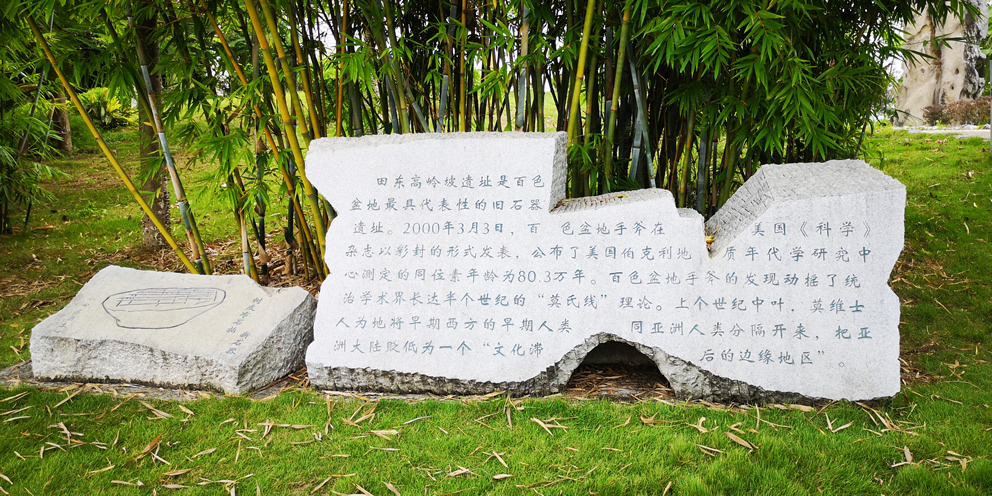 田东高岭坡遗址是百色
盆地最具代表性的旧石器
遗址。2000年3月3日，百色盆地手斧在美国《科学》
杂志以彩封的形式发表，公布了美国伯克利地质年代学研究中
心测定的同位素年龄为80.3万年。百色盆地手斧的发现动摇了统
治学术界长达半个世纪的“莫氏线”理论。上个世纪中叶，莫维士
人为地将早期西方的早期人类同亚洲人类分隔开来，把亚
洲大陆贬低为一个“文化滞后的边缘地区”。